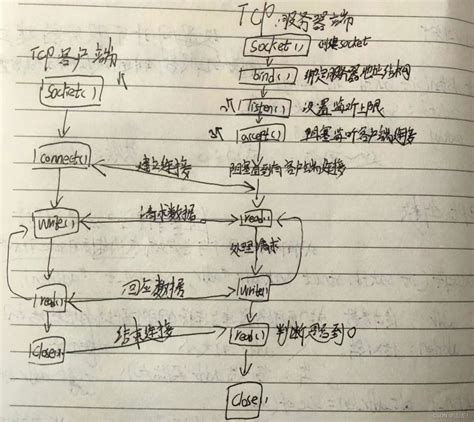 TCP 服务器端
TCP客户端
socket() 创建socket
socket()
bind() 绑定服务器地址结构
listen() 设置监听上限
accept() 阻塞监听客户端连接
connect()
阻塞直到有客户端连接
建立连接
write()
请求数据
read()
处理请求
read()
回应数据
write()
close()
结束连接
read() 判断是否读到0
close()